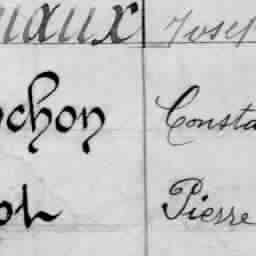 naux Josep
chon Consta
ph Pierre